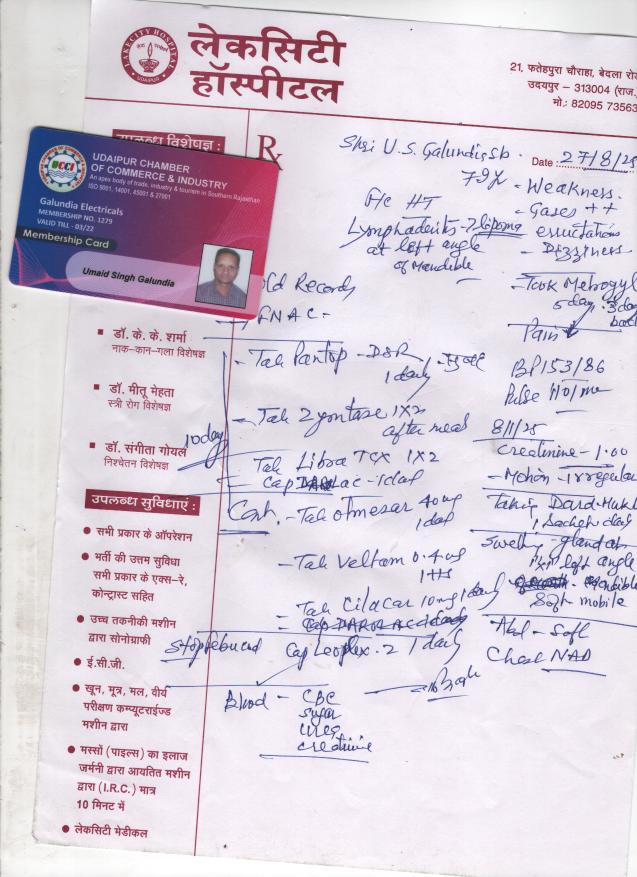 LAKECITY HOSPITAL
UDAIPUR
लेकसिटी
हॉस्पीटल
21, फतेहपुरा चौराहा, बेदला रोड
उदयपुर – 313004 (राज.)
मो.: 82095 73563
उपलब्ध विशेषज्ञ :
UCCI
UDAIPUR CHAMBER
OF COMMERCE & INDUSTRY
An apex body of trade, industry & tourism in Southern Rajasthan
ISO 9001, 14001, 45001 & 27001
Galundia Electricals
MEMBERSHIP NO. 1279
VALID TILL - 03/22
Membership Card
Umaid Singh Galundia
Rx
Shri U.S. Galundia Sb.
Date : 27/8/25
79y
- Weakness.
F/c HT
- Gases ++
Lymphadenitis - ? lipoma
eructations
at left angle
- Dizziness
of Mandible
Old Records
- Took Metrogyl
5 day . 3 day
back
FNAC -
Pain
- Tab Pantop - DSR
1 daily
BP 153/86
Pulse 110/me
- Tab Zyontase 1x2
after meal
8/11/25
Creatinine - 1.00
10 day
Tab Libra TCX 1x2
- Motion - irregular
Cap DAROLAC - 1 daily
Taking Dard-Mukti
1 Sachet daily
Cont. - Tab Olmesar 40 mg
1 daily
Swelling - gland at
left angle
- Tab Veltam 0.4 mg
1 HS
Mandible
Soft mobile
Tab Cilacar 10 mg 1 daily
Abd - Soft
Stop febucad
Cap Leoplex - 2 1 daily
Chest NAD
Blood - CBC
Sugar
Urea
Creatinine
डॉ. के. के. शर्मा
नाक-कान-गला विशेषज्ञ
डॉ. मीतू मेहता
स्त्री रोग विशेषज्ञ
डॉ. संगीता गोयल
निश्चेतन विशेषज्ञ
उपलब्ध सुविधाएं :
सभी प्रकार के ऑपरेशन
भर्ती की उत्तम सुविधा
सभी प्रकार के एक्स-रे,
कोन्ट्रास्ट सहित
उच्च तकनीकी मशीन
द्वारा सोनोग्राफी
ई.सी.जी.
खून, मूत्र, मल, वीर्य
परीक्षण कम्प्यूटराईज्ड
मशीन द्वारा
मस्सों (पाइल्स) का इलाज
जर्मनी द्वारा आयतित मशीन
द्वारा (I.R.C.) मात्र
10 मिनट में
लेकसिटी मेडीकल